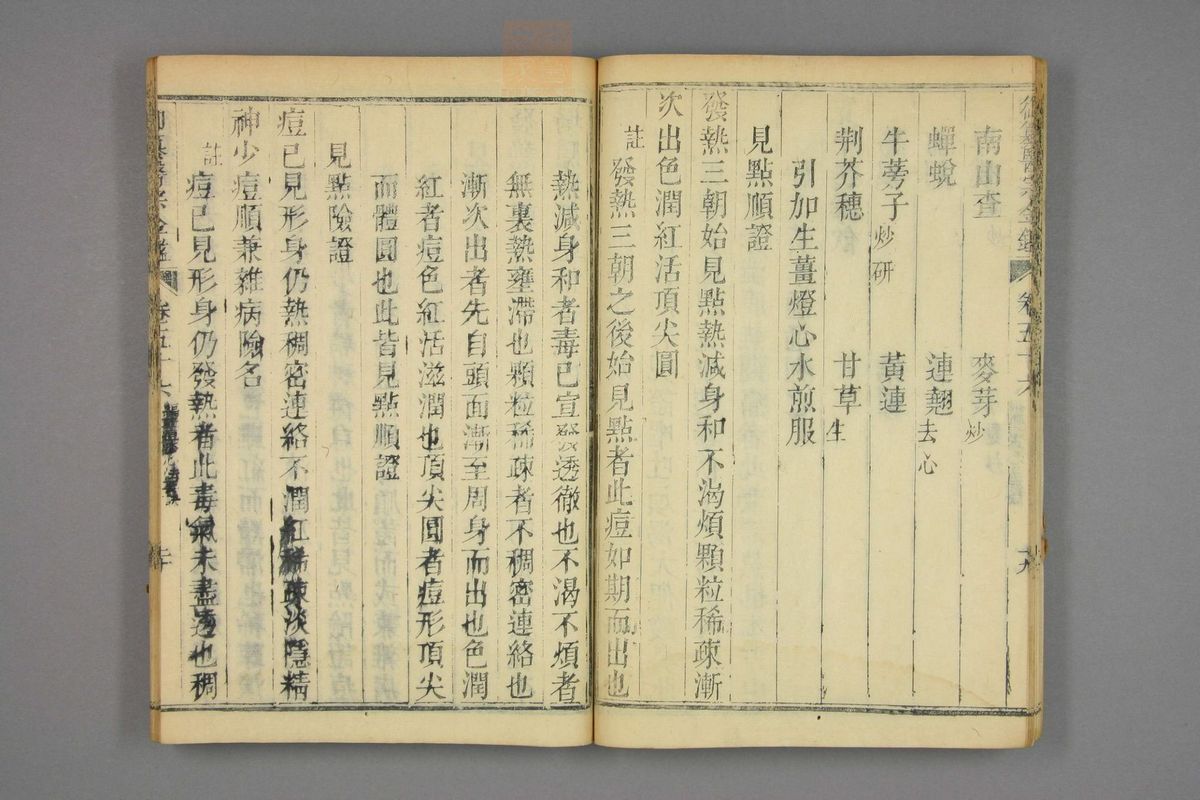 南山查　麥芽炒
蟬蛻　連翹去心
牛蒡子炒研　黃連
荆芥穗　甘草生
引加生薑燈心水煎服
見點順證
發熱三朝始見點熱減身和不渴煩顆粒稀疎漸
次出色潤紅活頂尖圓
註發熱三朝之後始見點者此痘如期而出也
熱減身和者毒已宣發透徹也不渴不煩者
無裏熱壅滯也顆粒稀疎者不稠密連絡也
漸次出者先自頭面漸至周身而出也色潤
紅者痘色紅活滋潤也頂尖圓者痘形頂尖
而體圓也此皆見點順證
見點險證
痘已見形身仍熱稠密連絡不潤紅稀疎淡隱精
神少痘順兼雜病險名
註痘已見形身仍發熱者此毒氣未盡透也稠